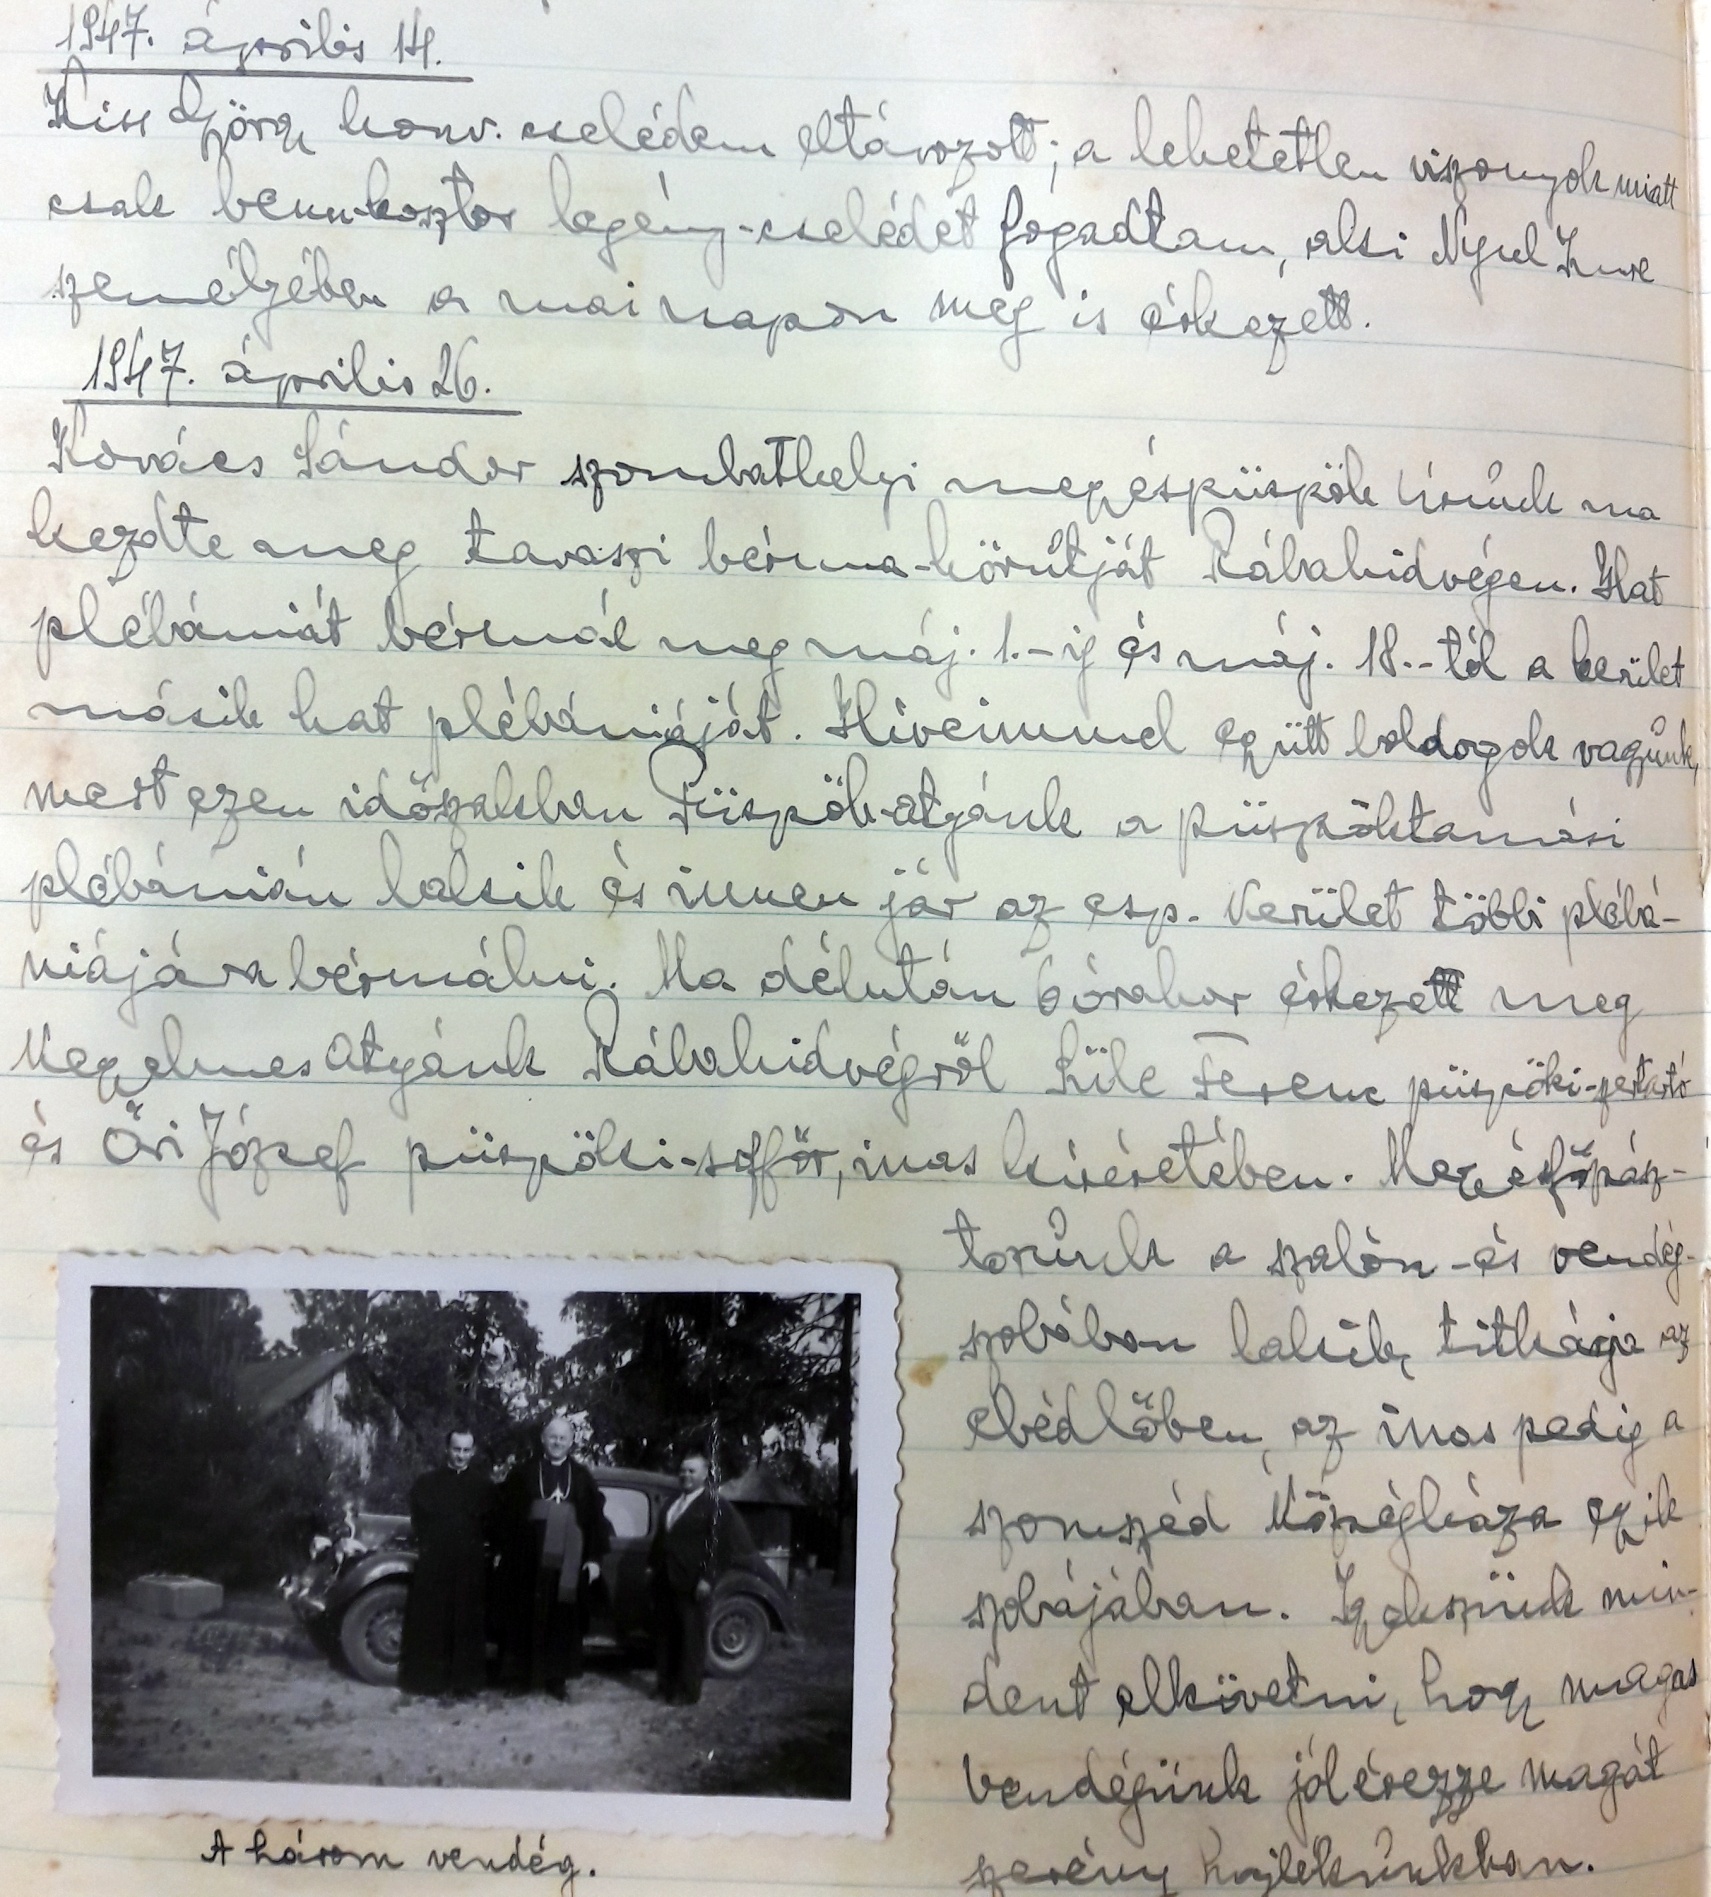 1947. április 14.
Kiss György konv. cselédem eltávozott; a lehetetlen viszonyok miatt
csak benn-kosztos legény-cselédet fogadtam, aki Nyul Imre
személyében a mai napon meg is érkezett.
1947. április 26.
Kovács Sándor szombathelyi megyéspüspök Úrunk ma
kezdte meg tavaszi bérma-körútját Rábahidvégen. Hat
plébániát bérmál meg máj. 1.-ig és máj. 18.-tól a kerület
másik hat plébániáját. Hiveimmel együtt boldogok vagyunk,
mert ezen időszakban Püspök-atyánk a püspöktamási
plébánián lakik és innen jár az esp. Kerület többi plébá-
niájára bérmálni. Ma délután 6 órakor érkezett meg
Kegyelmes Atyánk Rábahidvégről Küle Ferenc püspöki-szertartó
és Őri József püspöki-soffőr, inas kiséretében. Megyésfőpász-
torunk a szalón-és vendég-
szobában lakik, titkárja az
ebédlőben, az inas pedig a
szomszéd Községháza egyik
szobájában. Igyekszünk min-
dent elkövetni, hogy magas
vendégünk jól érezze magát
szerény hajlékunkban.
A három vendég.